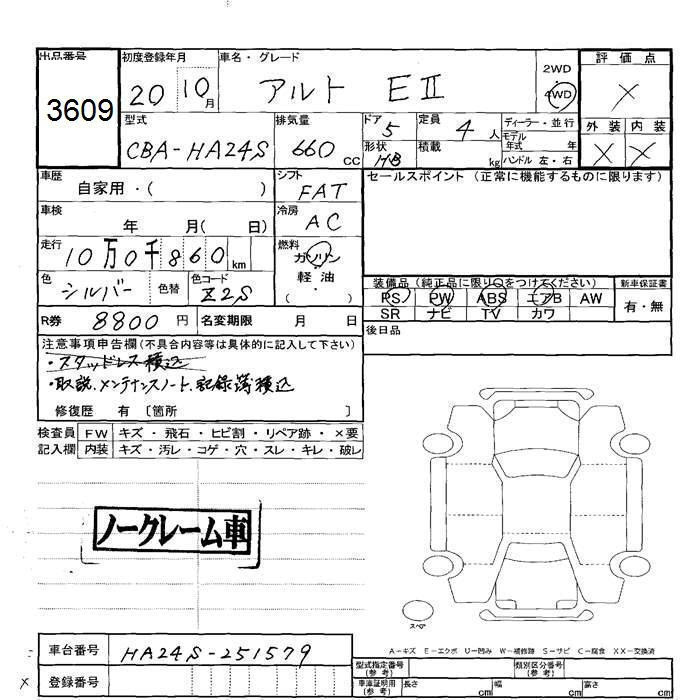 出品番号 初度登録年月 車名・グレード 2WD 評価点
3609 20 10月 アルト EⅡ 4WD X
型式 排気量 ドア 定員 ディーラー・並行 外装 内装
CBA-HA24S 660cc 5 4人 モデル年式 年 X X
形状 HB 積載 kg ハンドル 左・右
車歴 自家用・( ) シフト FAT セールスポイント (正常に機能するものに限ります)
車検 年 月( 日) 冷房 AC
走行 10万0千860km 燃料 ガソリン
軽油
( )
色 シルバー 色替 色コード Z2S 装備品 (純正品に限り○をつけてください) 新車保証書
PS PW ABS エアB AW 有・無
SR ナビ TV カワ
R券 8800円 名変期限 月 日 後日品
注意事項申告欄(不具合内容等は具体的に記入して下さい)
・スタッドレス積込
・取説、メンテナンスノート、記録簿積込
修復歴 有 〔箇所 〕
検査員 FW キズ・飛石・ヒビ割・リペア跡・×要
記入欄 内装 キズ・汚レ・コゲ・穴・スレ・キレ・破レ
ノークレーム車
スペア
A-キズ E-エクボ U-凹み W-補修跡 S-サビ C-腐食 XX-交換済
車台番号 HA24S-251579
型式指定番号(参考) 類別区分番号(参考)
x 登録番号 車庫証明用(参考) 長さ cm 幅 cm 高さ cm